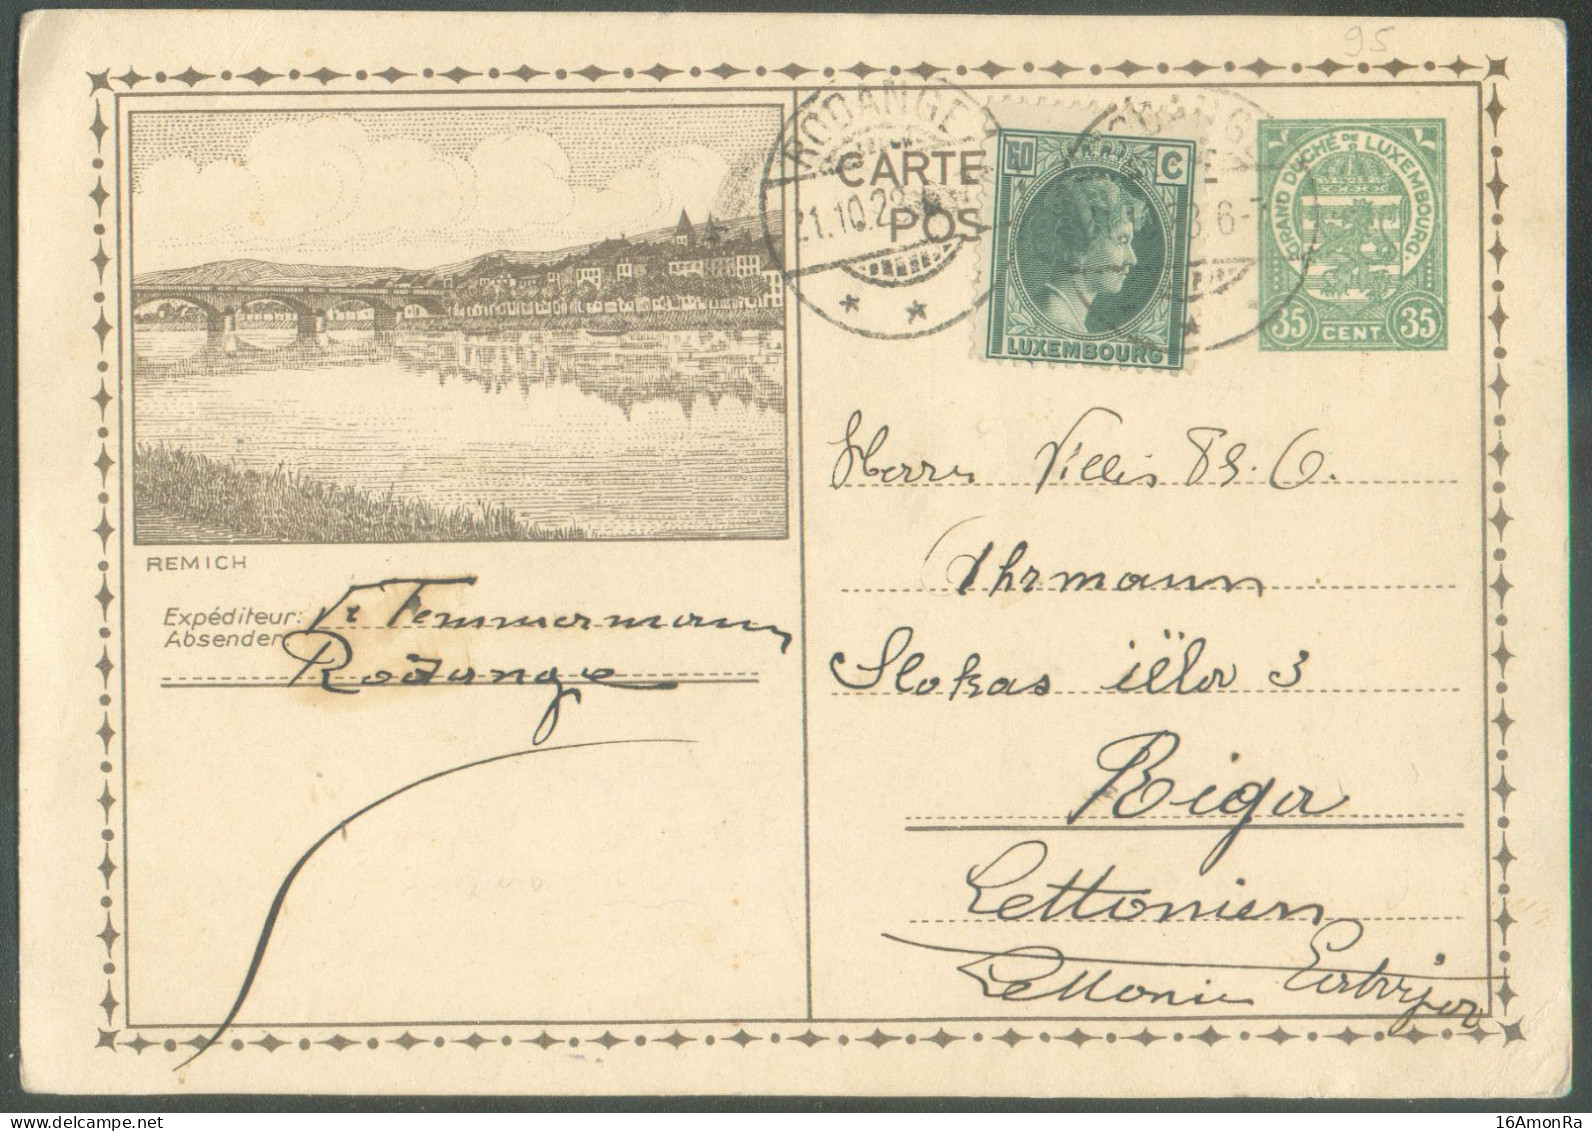 95
RODANGE
21.10.28
CARTE
POS
60 C
LUXEMBOURG
GRAND DUCHÉ DE LUXEMBOURG.
35 CENT. 35
REMICH
Herrn Villis
Ahrmann
Slokas 3
Riga
Lettonien
Lettonie
Expéditeur:
Absender: Temmermann
Rodange
16AmonRa